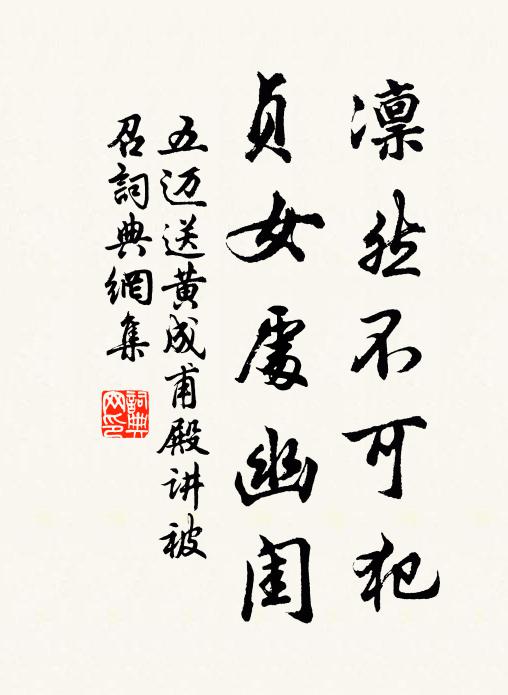 凛然不可犯
贞女處幽闺
五迈送黄成甫殿讲被
召詞典網集
詞典
网印